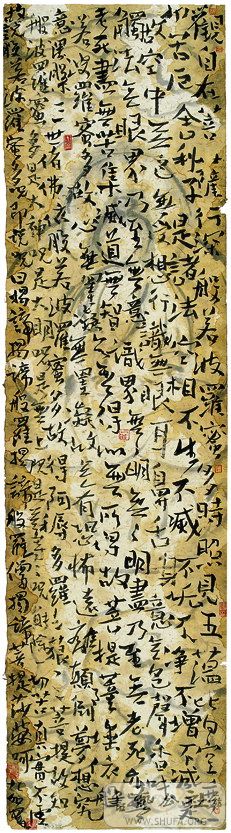 觀自在菩薩行深般若波羅蜜多時照見五蘊皆空
苦厄舍利子是諸法空相不生不滅不垢不淨不增不減
故空中無色無受想行識無眼耳鼻舌身意無色聲香味
觸法無眼界乃至無意識界無無明亦無無明盡乃至無老死亦無
老死盡無苦集滅道無智亦無得以無所得故菩提薩埵依
般若波羅蜜多故心無罣礙無罣礙故無有恐怖遠離顛倒夢想究
竟涅槃三世諸佛依般若波羅蜜多故得阿耨多羅三藐三菩提故知
般若波羅蜜多是大神咒是大明咒是無上咒是無等等咒能除一切苦真實不虛
故說般若波羅蜜多咒即說咒曰揭諦揭諦般羅揭諦般羅僧揭諦菩提薩婆訶
WWW.SHUFA.ORG